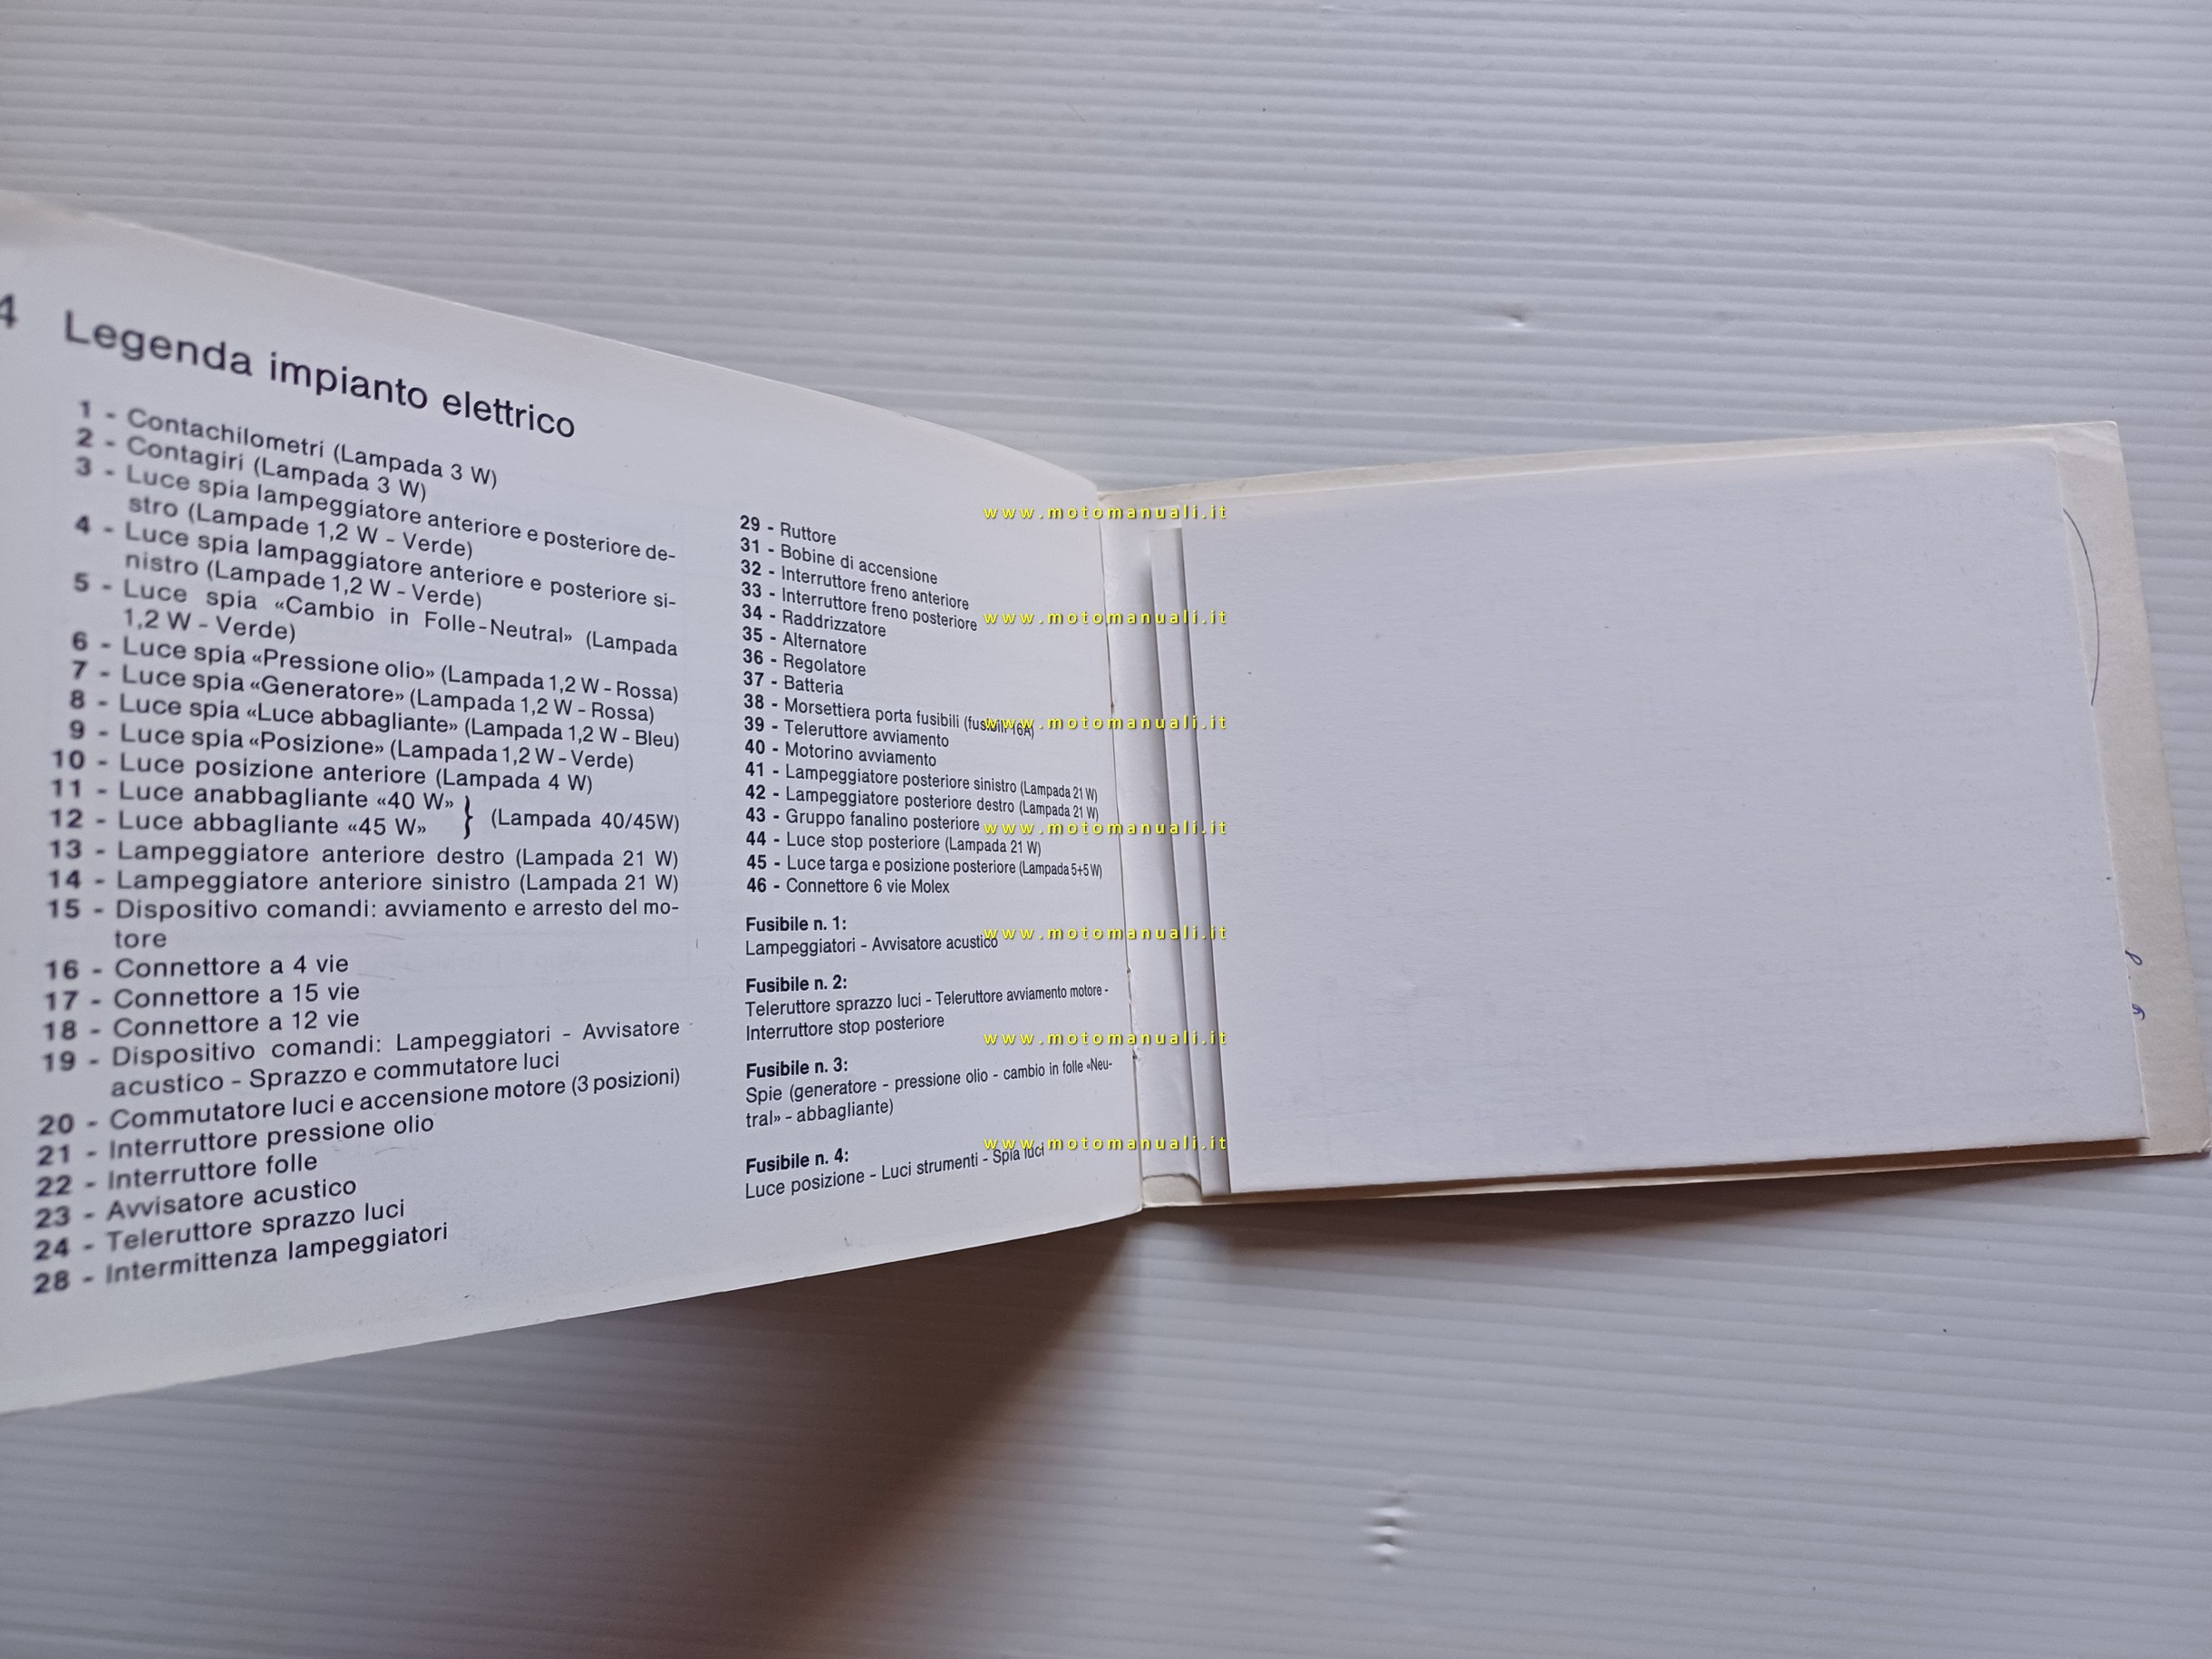 4 Legenda impianto elettrico
1 - Contachilometri (Lampada 3 W)
2 - Contagiri (Lampada 3 W)
3 - Luce spia lampeggiatore anteriore e posteriore de-
stro (Lampade 1,2 W - Verde)
4 - Luce spia lampaggiatore anteriore e posteriore si-
nistro (Lampade 1,2 W - Verde)
5 - Luce spia «Cambio in Folle-Neutral» (Lampada
1,2 W - Verde)
6 - Luce spia «Pressione olio» (Lampada 1,2 W - Rossa)
7 - Luce spia «Generatore» (Lampada 1,2 W - Rossa)
8 - Luce spia «Luce abbagliante» (Lampada 1,2 W - Bleu)
9 - Luce spia «Posizione» (Lampada 1,2 W - Verde)
10 - Luce posizione anteriore (Lampada 4 W)
11 - Luce anabbagliante «40 W»
12 - Luce abbagliante «45 W» } (Lampada 40/45W)
13 - Lampeggiatore anteriore destro (Lampada 21 W)
14 - Lampeggiatore anteriore sinistro (Lampada 21 W)
15 - Dispositivo comandi: avviamento e arresto del mo-
tore
16 - Connettore a 4 vie
17 - Connettore a 15 vie
18 - Connettore a 12 vie
19 - Dispositivo comandi: Lampeggiatori - Avvisatore
acustico - Sprazzo e commutatore luci
20 - Commutatore luci e accensione motore (3 posizioni)
21 - Interruttore pressione olio
22 - Interruttore folle
23 - Avvisatore acustico
24 - Teleruttore sprazzo luci
28 - Intermittenza lampeggiatori
29 - Ruttore
31 - Bobine di accensione
32 - Interruttore freno anteriore
33 - Interruttore freno posteriore
34 - Raddrizzatore
35 - Alternatore
36 - Regolatore
37 - Batteria
38 - Morsettiera porta fusibili (fusibili 16A)
39 - Teleruttore avviamento
40 - Motorino avviamento
41 - Lampeggiatore posteriore sinistro (Lampada 21 W)
42 - Lampeggiatore posteriore destro (Lampada 21 W)
43 - Gruppo fanalino posteriore
44 - Luce stop posteriore (Lampada 21 W)
45 - Luce targa e posizione posteriore (Lampada 5+5 W)
46 - Connettore 6 vie Molex
Fusibile n. 1:
Lampeggiatori - Avvisatore acustico
Fusibile n. 2:
Teleruttore sprazzo luci - Teleruttore avviamento motore -
Interruttore stop posteriore
Fusibile n. 3:
Spie (generatore - pressione olio - cambio in folle «Neu-
tral» - abbagliante)
Fusibile n. 4:
Luce posizione - Luci strumenti - Spia luci
www.motomanuali.it
www.motomanuali.it
www.motomanuali.it
www.motomanuali.it
www.motomanuali.it
www.motomanuali.it
www.motomanuali.it